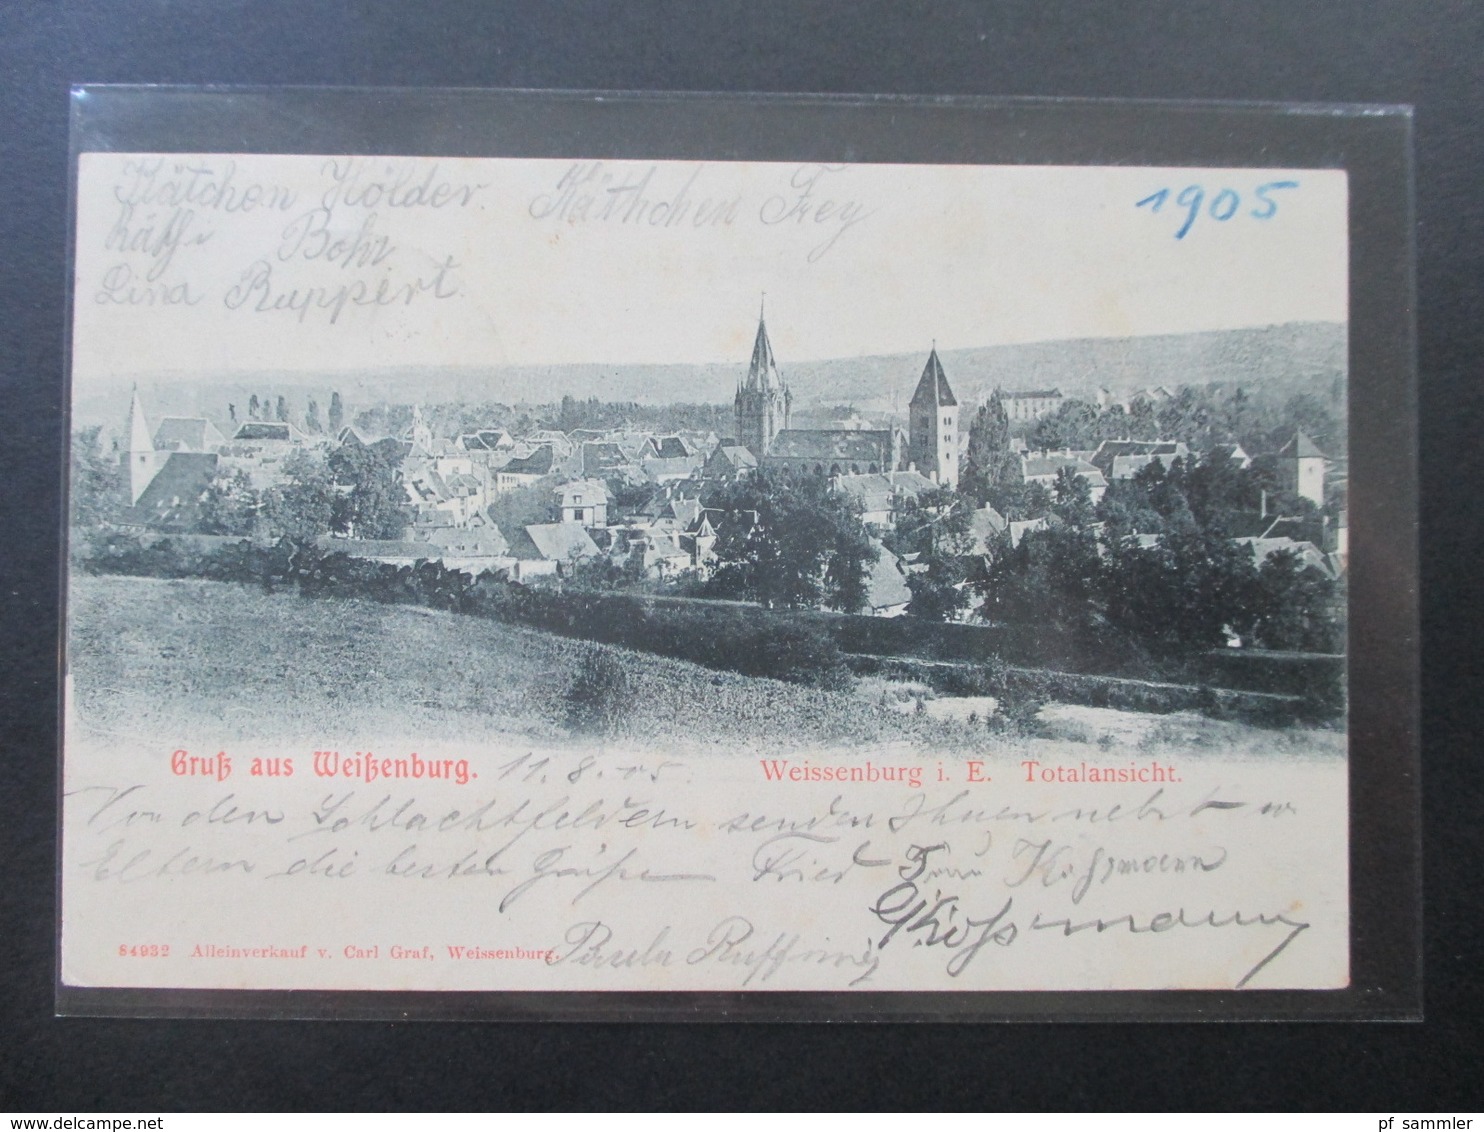 Kätchen Hölder. Käthchen Frey 1905
Käthi Bohr
Lina Ruppert.
Gruß aus Weißenburg. 11.8.05. Weissenburg i. E. Totalansicht.
Von den Schlachtfeldern senden Ihnen nebst
Eltern die besten Grüße Fried Frau Koßmann
Koßmann
84932 Alleinverkauf v. Carl Graf, Weissenburg. Paula
pf_sammler
delcampe.net